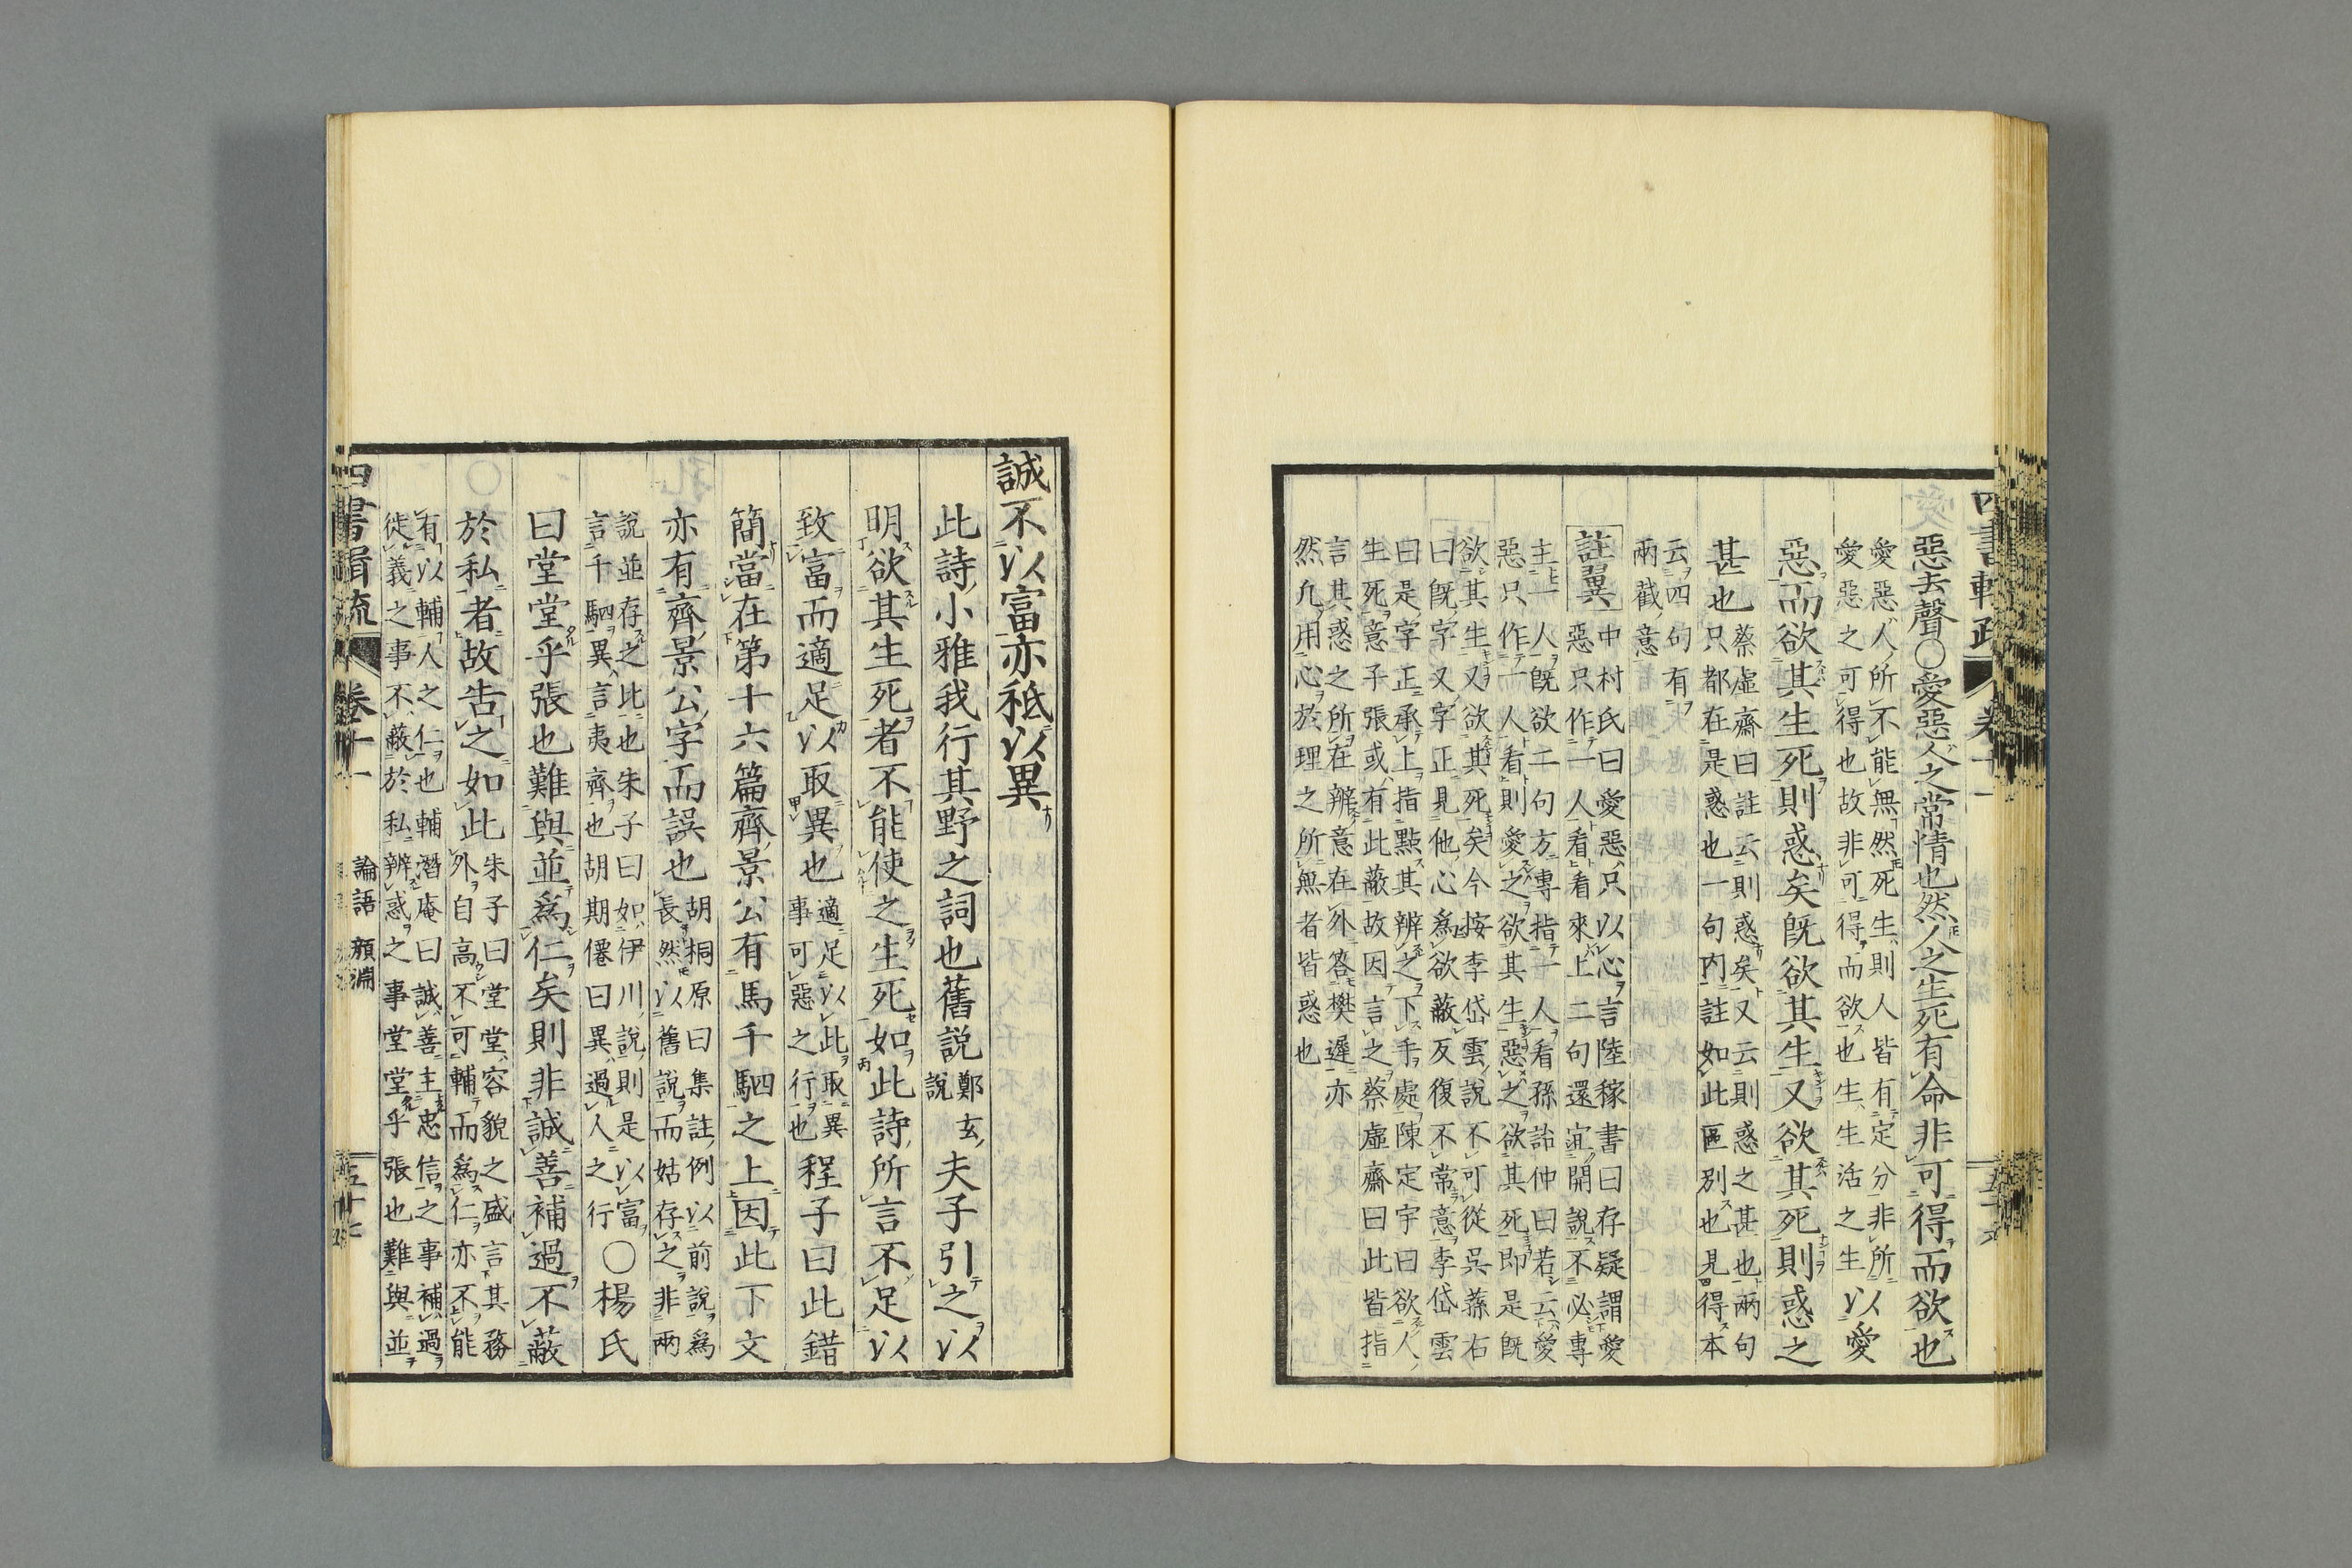 惡去聲○愛惡人之常情也然人之生死有命非可得而欲也
愛惡人所不能無然死生則人皆有定分非所
愛惡之可得也故非可得而欲也生生活之生以愛
惡而欲其生死則惑矣既欲其生又欲其死則惑之
甚也蔡虛齋曰註云則惑矣又云則惑之甚也兩句
只都在是惑也一句内註如此區別也見得本
云四句有
兩截意
註翼中村氏曰愛惡只以心言陸稼書曰存疑謂愛
惡只作一人看看來上二句還宜開說不必專
主一人既欲二句方專指一人看孫詒仲曰若云愛
惡只作一人看則愛之欲其生惡之欲其死即是既
欲其生又欲其死矣今按李岱雲說不可從吳蓀右
曰既字又字正見他心爲欲蔽反復不常意李岱雲
曰是字正承上指點其辨之下手處陳定宇曰欲人
生死意子張或有此蔽故因言之蔡虛齋曰此皆指
言其惑之所在辨意在外答樊遲亦
然凡用心於理之所無者皆惑也
誠不以富亦祗以異
此詩小雅我行其野之詞也舊說鄭玄說夫子引之以
明欲其生死者不能使之生死如此詩所言不足以
致富而適足以取異也適足以此取異
事可惡之行也程子曰此錯
簡當在第十六篇齊景公有馬千駟之上因此下文
亦有齊景公字而誤也胡桐原曰集註例以前說爲
長然以舊說而姑存之非兩
說並存之比也朱子曰如伊川說則是以富
言千駟異言夷齊也胡期僊曰異過人之行○楊氏
曰堂堂乎張也難與並爲仁矣則非誠善補過不蔽
於私者故告之如此朱子曰堂堂容貌之盛言其務
外自高不可輔而爲仁亦不能
有以輔人之仁也輔潛庵曰誠善主忠信之事補過
徙義之事不蔽於私辨惑之事堂堂乎張也難與並
卷十一
論語 顏淵